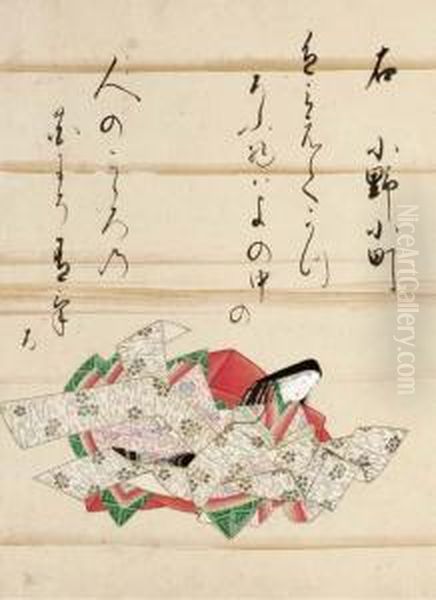 右　小野小町
色みえてうつ
ろふ物はよの中
の
人のこゝろの
花にそ有け
る
NiceArtGallery.com